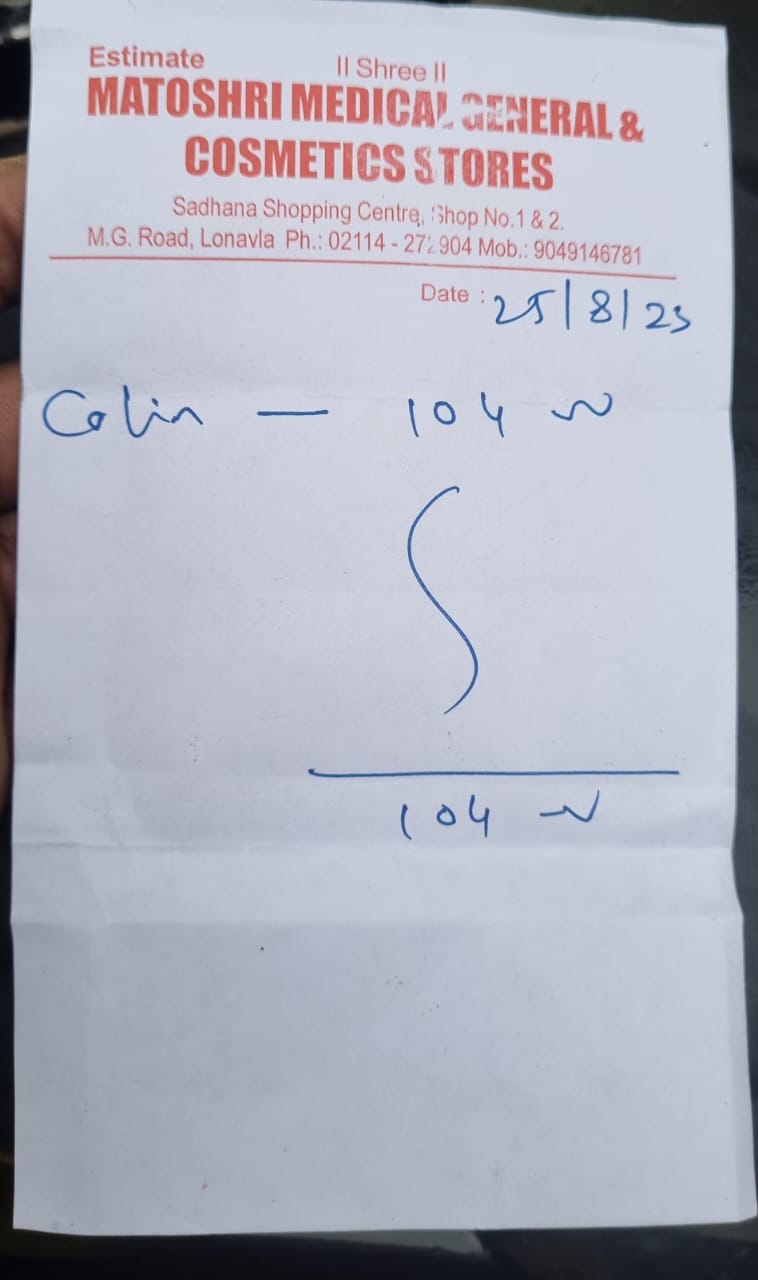 Estimate
|| Shree ||
MATOSHRI MEDICAL GENERAL &
COSMETICS STORES
Sadhana Shopping Centre, Shop No.1 & 2.
M.G. Road, Lonavla Ph.: 02114 - 272904 Mob.: 9049146781
Date : 25/8/23
Colin — 104
104